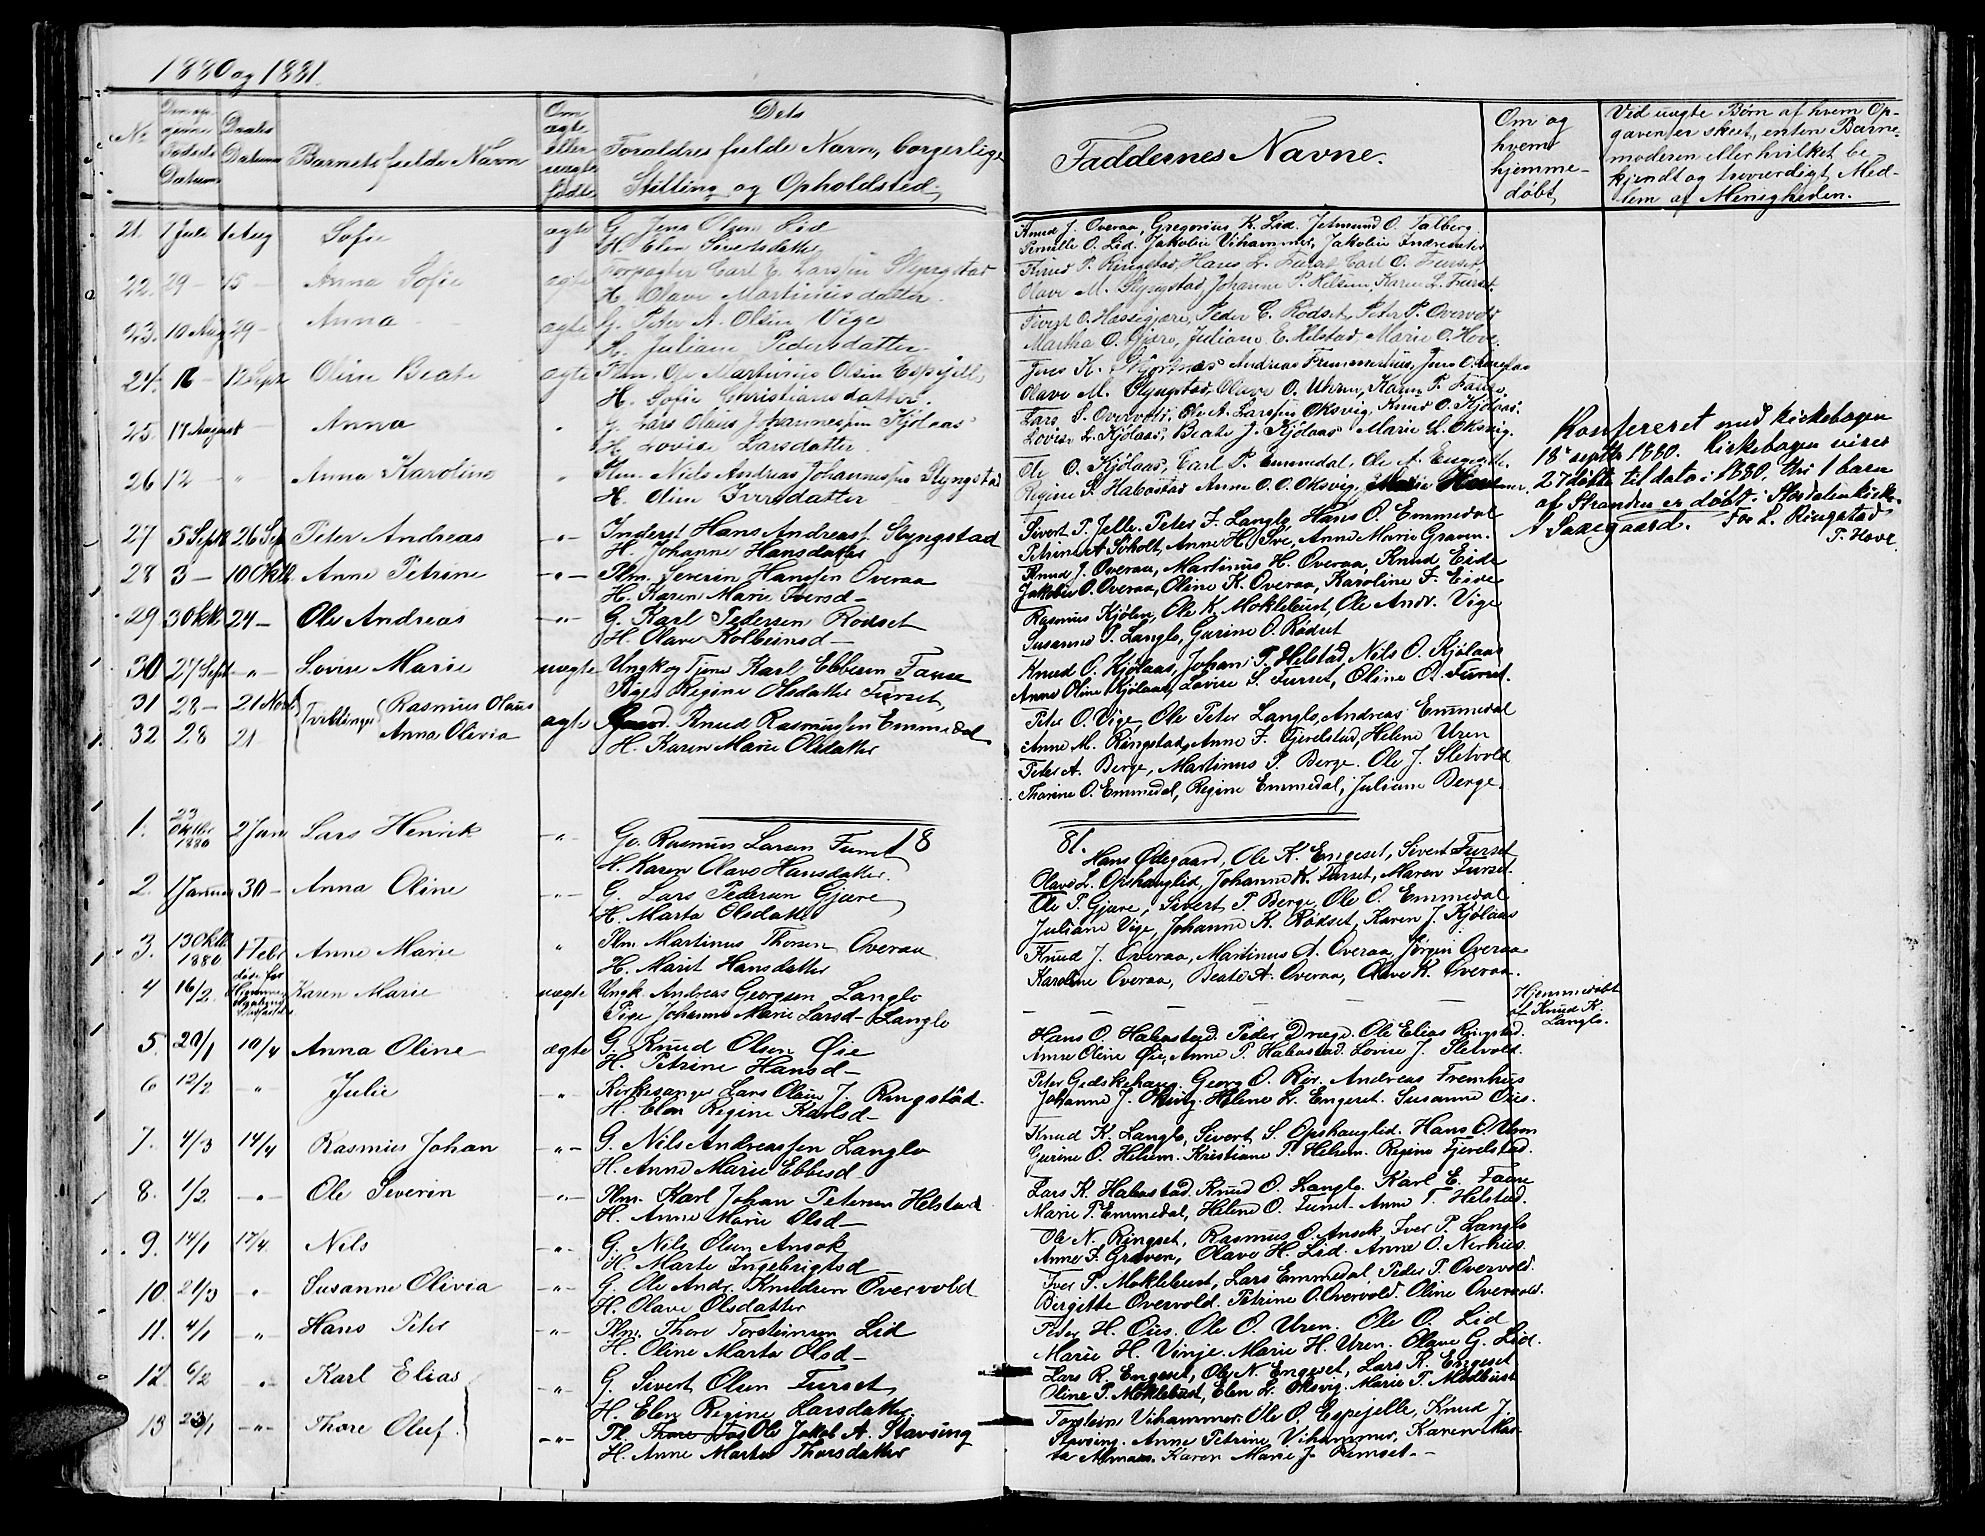 1880 og 1881.
No
Den opgivne Fødsels Datum
Daabs Datum
Barnets fulde Navn
Om ægte eller uægte fødte
Dets
Foraldres fulde Navn, borgerlige
Stilling og Opholdsted.
Faddernes Navne.
Om og hvem hjemmedøbt
Ved uægte Børn af hvem Op-
gaven er skeet, enten Barne-
moderen eller hvilket be
kjendt og troværdigt Med-
lem af Menigheden.
21. 1 Juli 1 Aug Sofie ægte G. Jens Olsen Lid
H. Elen Sivertsdatter
Knud J. Overaa, Gregorius K. Lid. Jetmund O. Talberg.
Pernille O. Lid. Jakobie Vihammer, Jakobie
22. 29 - 15 - Anna Sofie ægte Forpagter Carl E. Larssen Slyngstad
H. Olave Martinusdatter.
Knud P. Ringstad, Hans L. Furset, Carl O. Furset,
Olave M. Slyngstad, Johanne P. Helsem, Karen L. Furset.
23. 10 Aug 29 - Anna ægte G. Peter A. Olsen Vige
H. Juliane Pedersdatter
Sivert O. Hassegjære, Peder C. Rødset, Peter P. Overvold
Martha O. Gjære, Juliane E. Helstad, Marie O. Hove.
24. 12 Sept Oline Beate ægte Plm. Ole Martinius Olsen Espejell
H. Sofie Christiansdatter.
Jens K. Andreas
Olave M. Slyngstad, Olave O. Uhren, Karen P. Fause
25. 17 August - Anna " G. Lars Olaus Johannessen Kjølaas
H. Lovise Larsdatter
Lars S. Overvold, Ole A. Larssen Oksvig, Knud O. Kjølaas.
Lovise L. Kjølaas, Beate J. Kjølaas Marie L. Oksvig.
26 12 - " - Anna Karoline " Plm. Niels Andreas Johannessen Slyngstad
H. Oline Iversdatter
Ole O. Kjølaas, Carl P. Emmedal, Ole A. Engeset
Regine S. Habostad Anne O. O. Oksvig,
Konfereret med kirkebogen
18de septbr 1880. Kirkebogen viser
27 døbte til dato i 1880, thi 1 barn
af Stranden er døbt i Stordalen kirke.
A Saxegaard. For L. Ringstad
P. Hove.
27 5 Sept 26 Sep Peter Andreas - " - Inderst Hans Andreas Slyngstad
H. Johanne Hansdatter
Sivert P. Jelle. Peter F. Langlo, Hans O. Emmedal
Petrine A Soholt, Anne H. Sve, Anne Marie Graven.
28 3 - 10 Oktb Anne Petrine - " - Plm. Severin Hanssen Overaa
H. Karen Marie Iversd -
Knud J. Overaa, Martinus H. Overaa, Knud Eide
Jakobie O. Overaa, Oline K. Overaa, Karoline F. Eide
29 3 Okt. 24 - Ole Andreas - " - G. Karl Pedersen Rødset
H. Olave Kolbeinsd -
Rasmus Kjølen, Ole K. Moklebust, Ole Andr. Vige
Susanne P. Langlo, Gurine O. Rødset
30 27 Sept - " - Lovise Marie uægte Ungk og Tjene Karl Ebbesen Fause
Pige Regine Olsdatter Furset,
Knud O. Kjølaas, Johan P. Helstad, Nils O. Kjølaas
Anne Oline Kjølaas, Lovise S. Furset, Oline O. Furset.
31 28 - 21 Novb Tvillinger Rasmus Olaus
32 28 21 - Anna Olivia ægte Gaard. Knud Rasmussen Emmedal
H. Karen Marie Olsdatter
Peter O. Vige, Ole Peter Langlo, Andreas Emmedal
Anne M. Ringstad, Anne F. Fjerelstad, Helene Uren
Peter A. Berge, Martinus P. Berge. Ole J. Sletvold
Thorine O. Emmedal, Regine Emmedal, Juliane Berge.
1881.
1. 23 Oktbr 1880 2 Jan Lars Henrik - " - G. Rasmus Larsen Furset
H. Karen Olava Hansdatter.
Hans Ødegaard, Ole K. Engeset, Sivert Furset
Olave L. Opshauglid, Johanne K. Furset, Maren Furset.
2. 1 Januar 30 - Anna Oline - " - G. Lars Pedersen Gjære
H. Marta Olsdatter
Ole P. Gjære, Sivert P Berge, Ole O. Emmedal
Juliane Vige, Johanne K. Rødset, Karen J. Kjølaas
3. 13 Oktb. 1880 1 Febr Anne Marie " Plm Martinus Thorsen Overaa
H. Marit Hansdatter
Knud J. Overaa, Martinus A. Overaa, Jørgen Overaa
Karoline Overaa, Beate A. Overaa, Olave K. Overaa.
4 16/2. Karen Marie uægte Ungk. Andreas Georgsen Langlo
Pige Johanne Marie Larsd - Langlo
Hjemmedøbt
af Knud K.
Langlo.
5. 20/1 10/4 Anna Oline ægte G. Knud Olsen Øie
H. Petrine Hansd -
Hans O. Habostad. Peder Drage. Ole Elias Ringstad.
Anne Oline Øie, Anne P. Habostad. Lovise J. Sletvold.
6 12/2 " Julie " Kirkesanger Lars Olaus J. Ringstad.
H. Elen Regine Karlsd -
Peter Gedskehaug. Georg O. Rør. Andreas Fremhus
Johanne J. Oksvig. Helene L. Engeset. Susanne Oies.
7. 4/3 14/4 Rasmus Johan - " - G. Nils Andreassen Langlo
H. Anne Marie Ebbesd
Knud K. Langlo, Sivert S. Opshauglid. Hans O. Uren
Gurine O. Helsem. Kristiane P. Helsem. Regine Fjerelstad.
8. 1/2 - " - Ole Severin - " - Plm. Karl Johan Petersen Helstad
H. Anne Marie Olsd -
Lars K. Habostad. Knud O. Langlo. Karl E. Fause
Marie P. Emmedal, Helene O. Furset. Anne P. Helstad.
9. 14/1 17/4. Nils - " - G. Nils Olsen Ansok
H. Marte Ingebrigtsd
Ole N. Ringset, Rasmus O. Ansok, Iver P. Langlo
Anne F. Graven, Olave H. Lid. Anne O. Nerhus.
10. 21/3 " Susanne Olivia - " - G. Ole Andr. Knudsen Overvold
H. Olave Olsdatter
Iver P. Moklebust, Lars Emmedal, Peder P. Overvold.
Birgitte Overvold. Petrine O. Overvold. Oline Overvold.
11. 4/1 - " - Hans Peter - " - Plm. Thore Torsteinsen Lid
H. Oline Marta Olsd -
Peder H. Oies. Ole O. Uren. Ole O. Lid
Marie H. Vinje. Marie H. Uren. Olave G. Lid.
12. 6/2 - " - Karl Elias - " - G. Sivert Olsen Furset
H. Elen Regine Larsdatter
Lars R. Engeset, Ole N. Engeset, Lars K. Engeset
Oline P. Moklebust, Elen L. Oksvig. Marie P. Moklebust
13 23/1 - " - Thore Oluf. - " - Pl. Ole Jakob A. Stavsing
H. Anne Marta Thorsdatter
Torstein Vihammer. Ole O. Espejelle, Knud J.
Stavsing. Anne Petrine Vihammer, Karen Mar-
ta Karen Marie J. Rømset. -